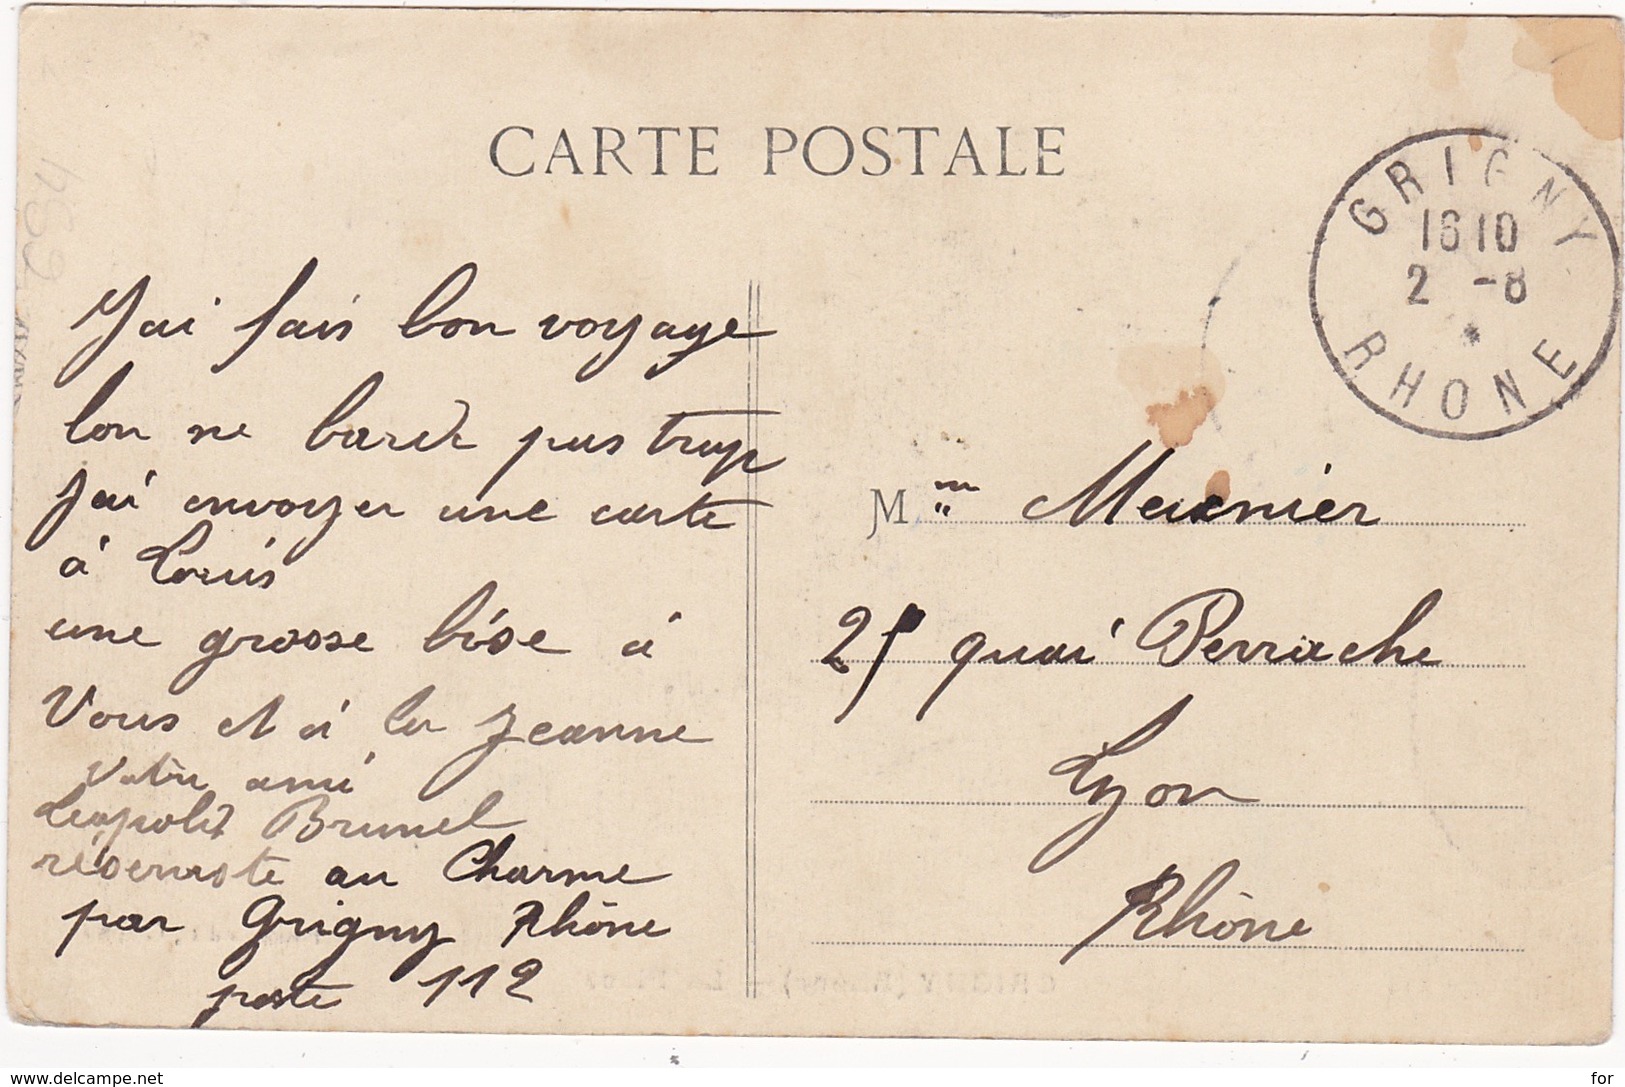 CARTE POSTALE
GRIGNY
16 10
2 -8
*
RHONE
J'ai fais bon voyage
lon ne barde pas trop
J'ai envoyer une carte
à Louis
une grosse bise à
Vous et à la Jeanne
votre ami
Leopolet Brunel
réserviste au Charme
par Grigny Rhône
poste 112
Mme Meunier
25 quai Perrache
Lyon
Rhône
www.delcampe.net
for